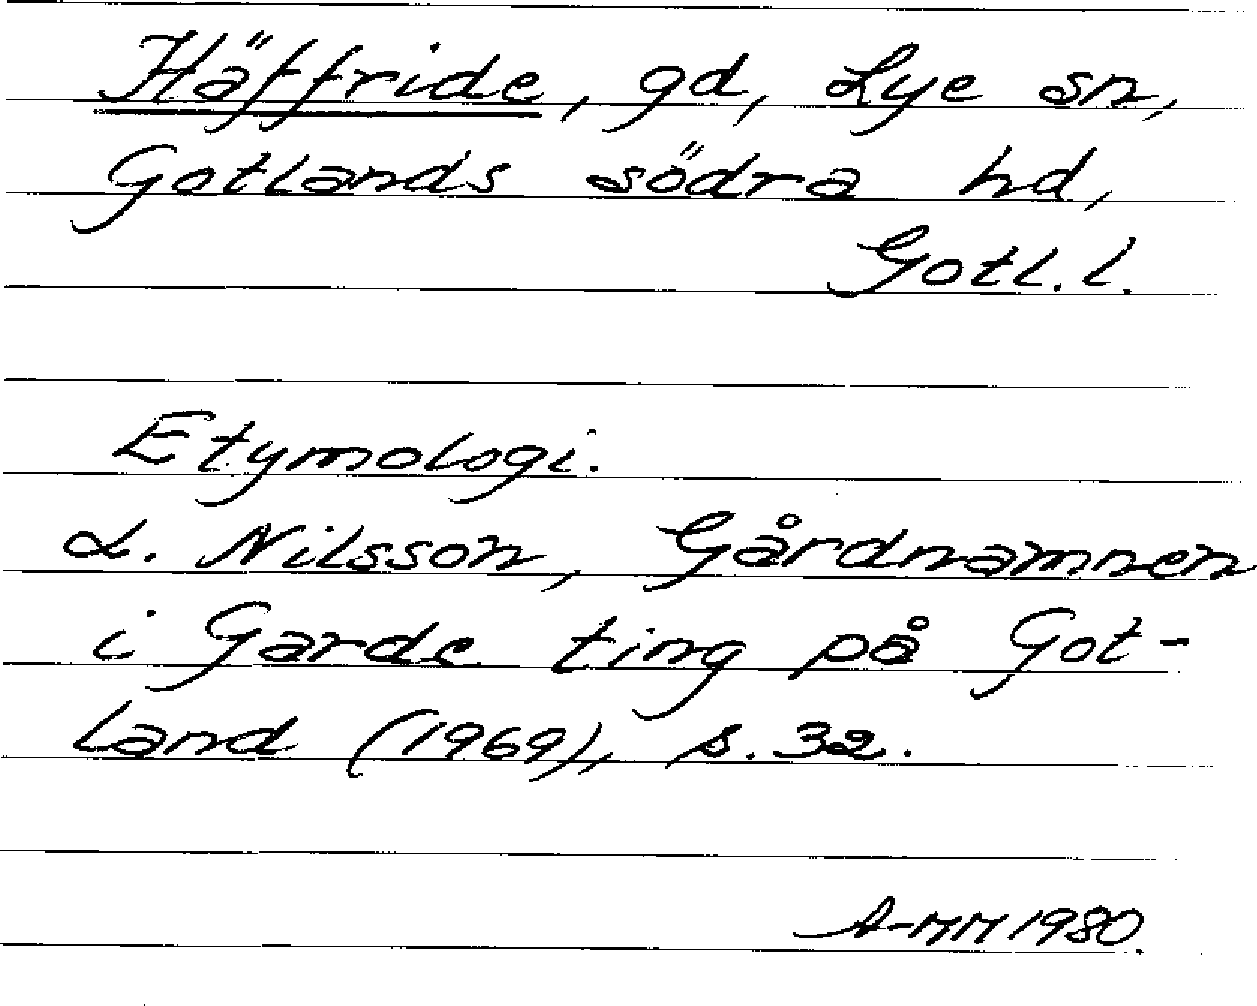 Häffride, gd, Lye sn,
Gotlands södra hd,
Gotl. l.
Etymologi.
L. Nilsson, Gårdnamnen
i Garde ting på Got-
land (1969), s. 32.
A-MM 1980.